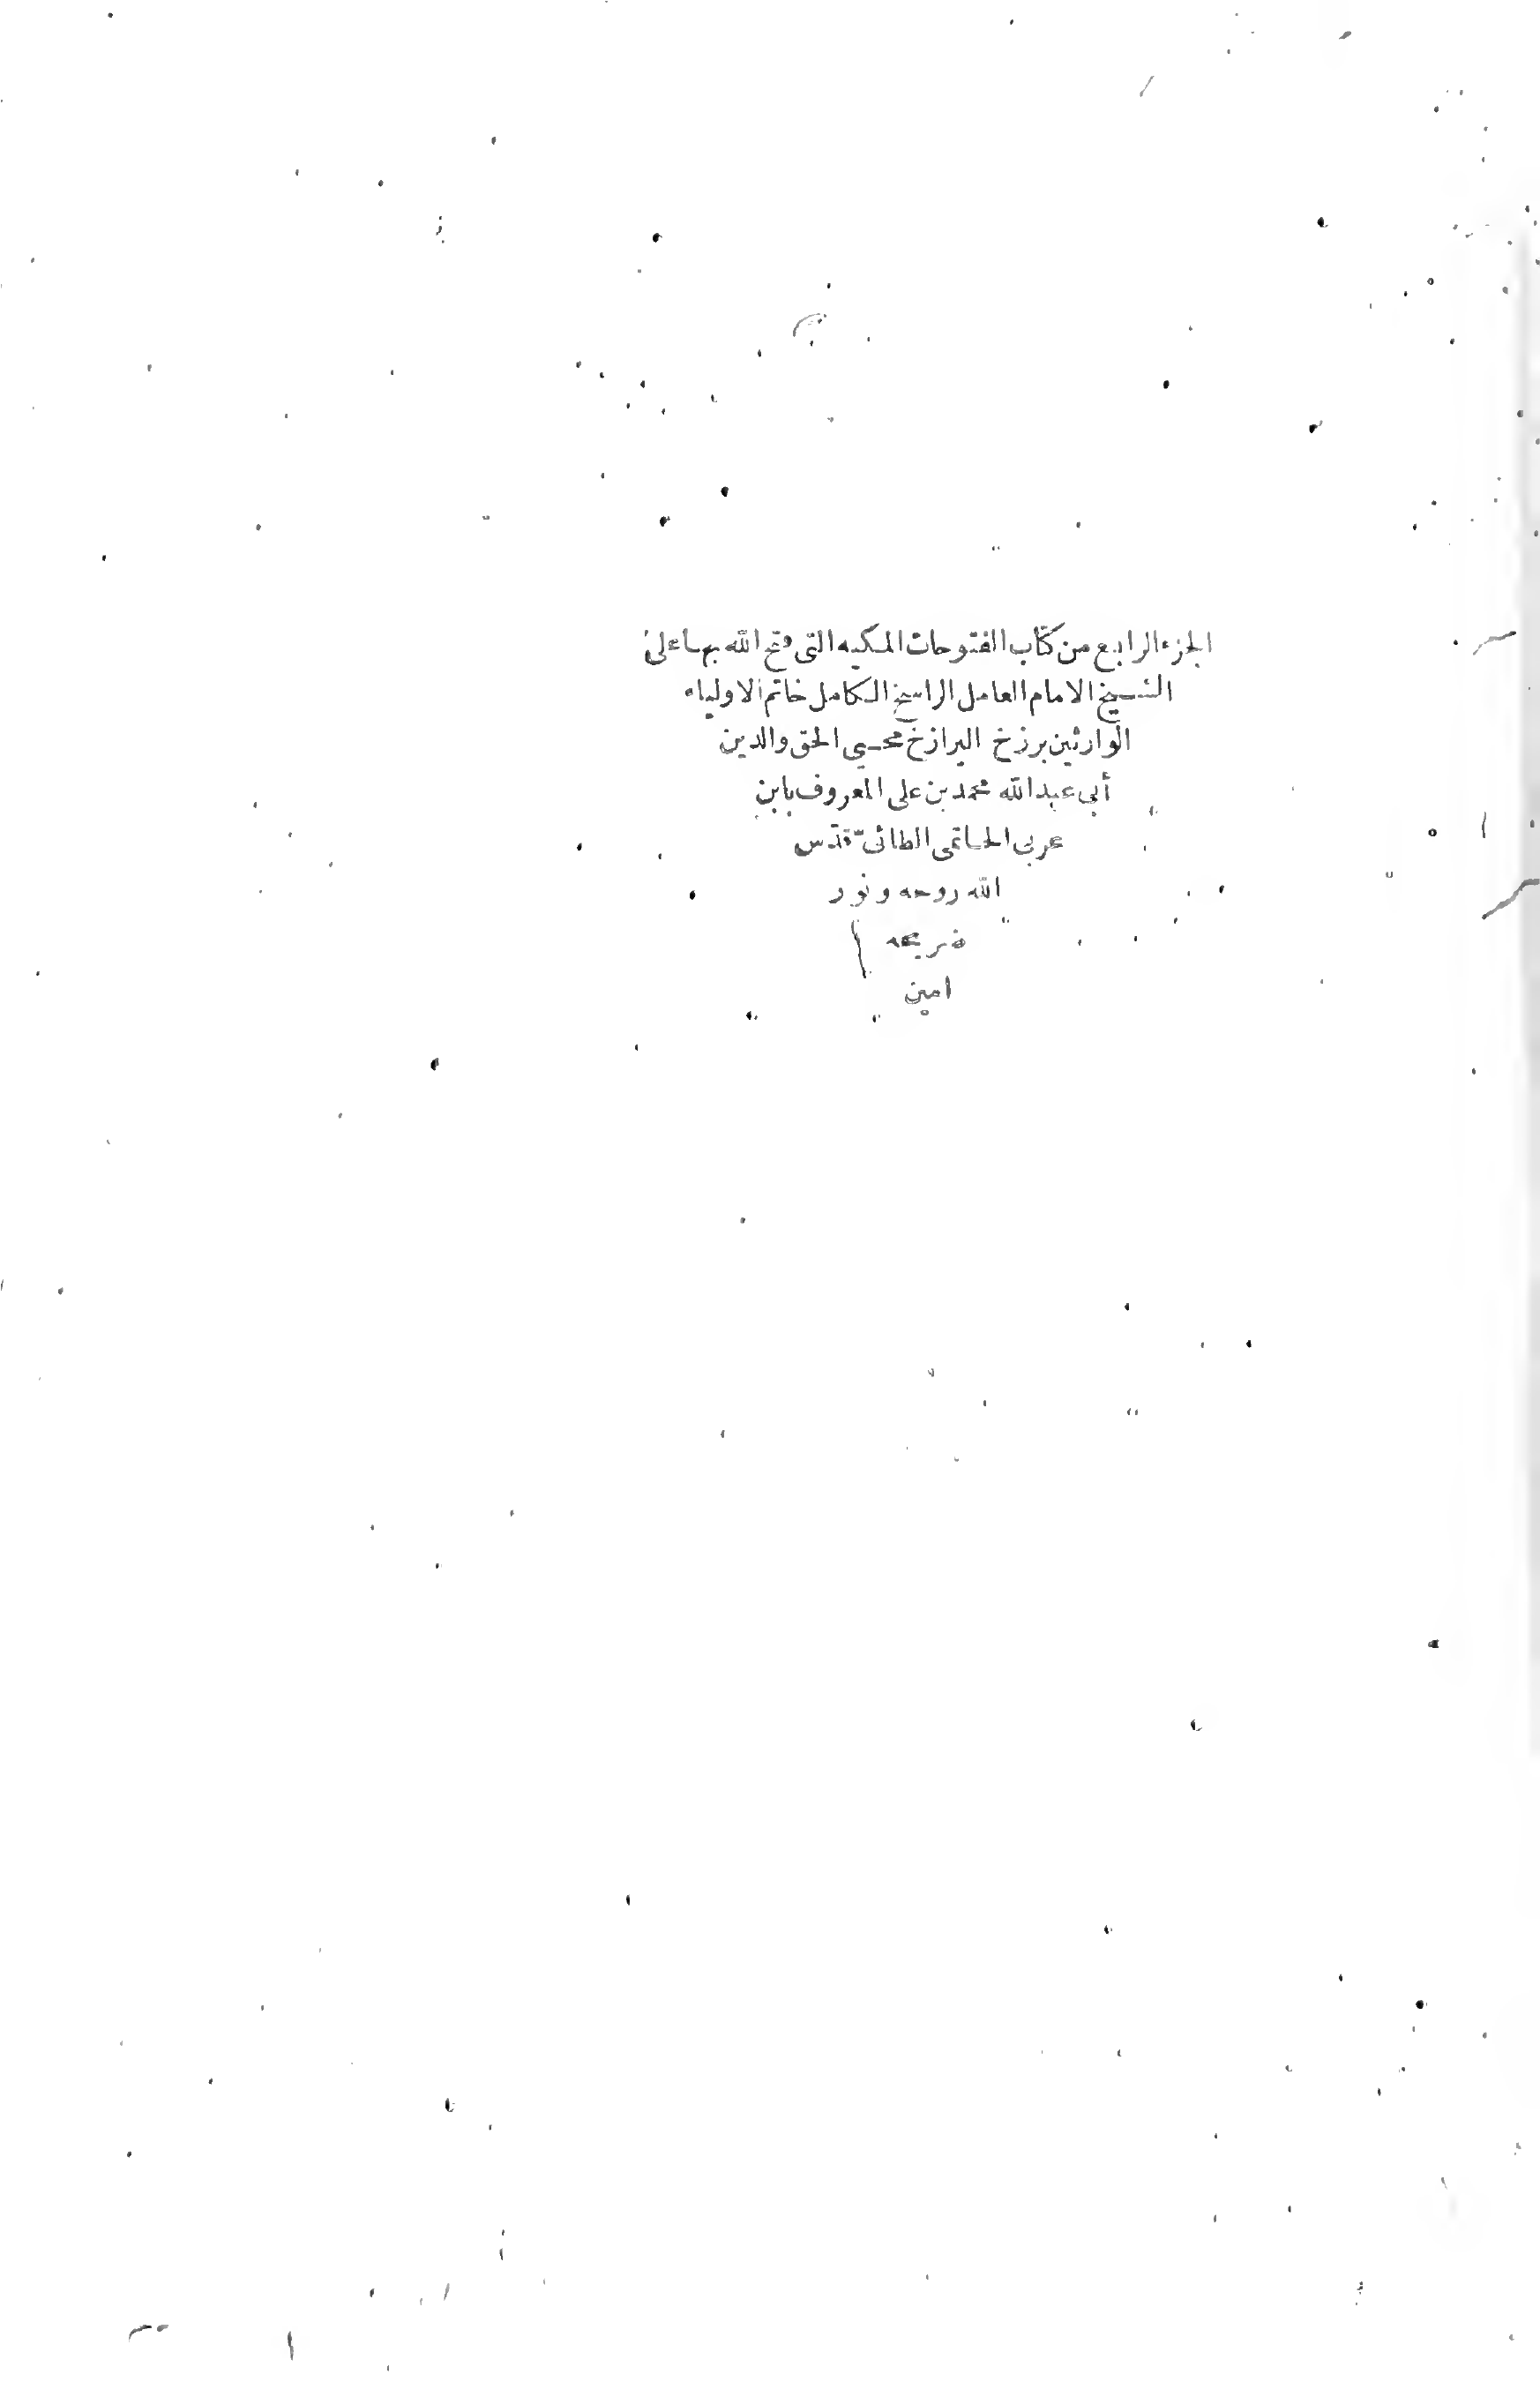 الجزء الرابع من كتاب الفتوحات المكيه التى فتح الله بها على
الشيخ الامام العامل الراسخ الكامل خاتم الاولياء
الوارثين برزخ البرازخ محيي الحق والدين
أبى عبد الله محمد بن على المعروف بابن
عربى الحاتمى الطائىّ قدّس
الله روحه ونور
ضريحه
امين